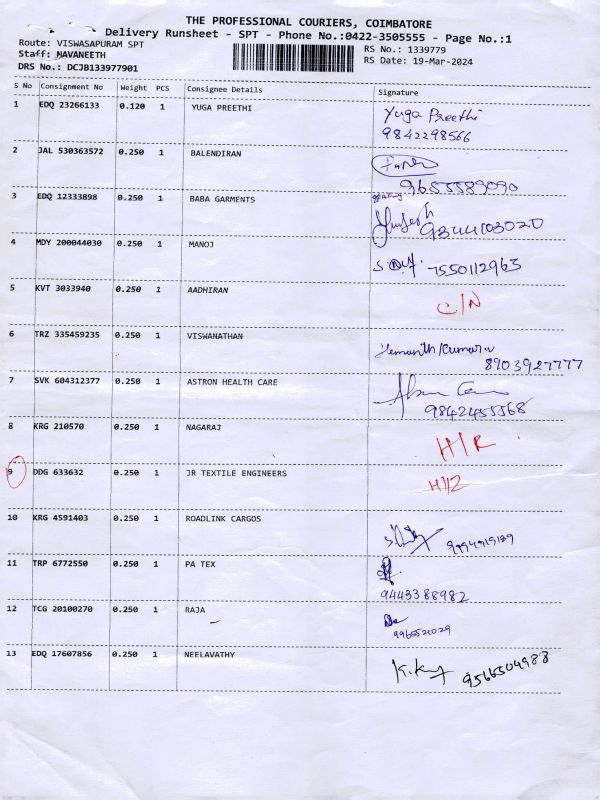 THE PROFESSIONAL COURIERS, COIMBATORE
Delivery Runsheet - SPT - Phone No.:0422-3505555 - Page No.:1
Route: VISWASAPURAM SPT
Staff: NAVANEETH
DRS No.: DCJB133977901
RS No.: 1339779
RS Date: 19-Mar-2024
S No Consignment No Weight PCS Consignee Details Signature
1 EDQ 23266133 0.120 1 YUGA PREETHI Yuga Preethi
9842298566
2 JAL 530363572 0.250 1 BALENDIRAN
9655589090
3 EDQ 12333898 0.250 1 BABA GARMENTS
9344103020
4 MDY 200044030 0.250 1 MANOJ 7550112963
5 KVT 3033940 0.250 1 AADHIRAN C/N
6 TRZ 335459235 0.250 1 VISWANATHAN Hemanth Kumar.v
8903927777
7 SVK 604312377 0.250 1 ASTRON HEALTH CARE
9842455568
8 KRG 210570 0.250 1 NAGARAJ H/R
9 DDG 633632 0.250 1 JR TEXTILE ENGINEERS
10 KRG 4591403 0.250 1 ROADLINK CARGOS
11 TRP 6772550 0.250 1 PA TEX
9443388982
12 TCG 20100270 0.250 1 RAJA
9965521029
13 EDQ 17607856 0.250 1 NEELAVATHY 9566504988